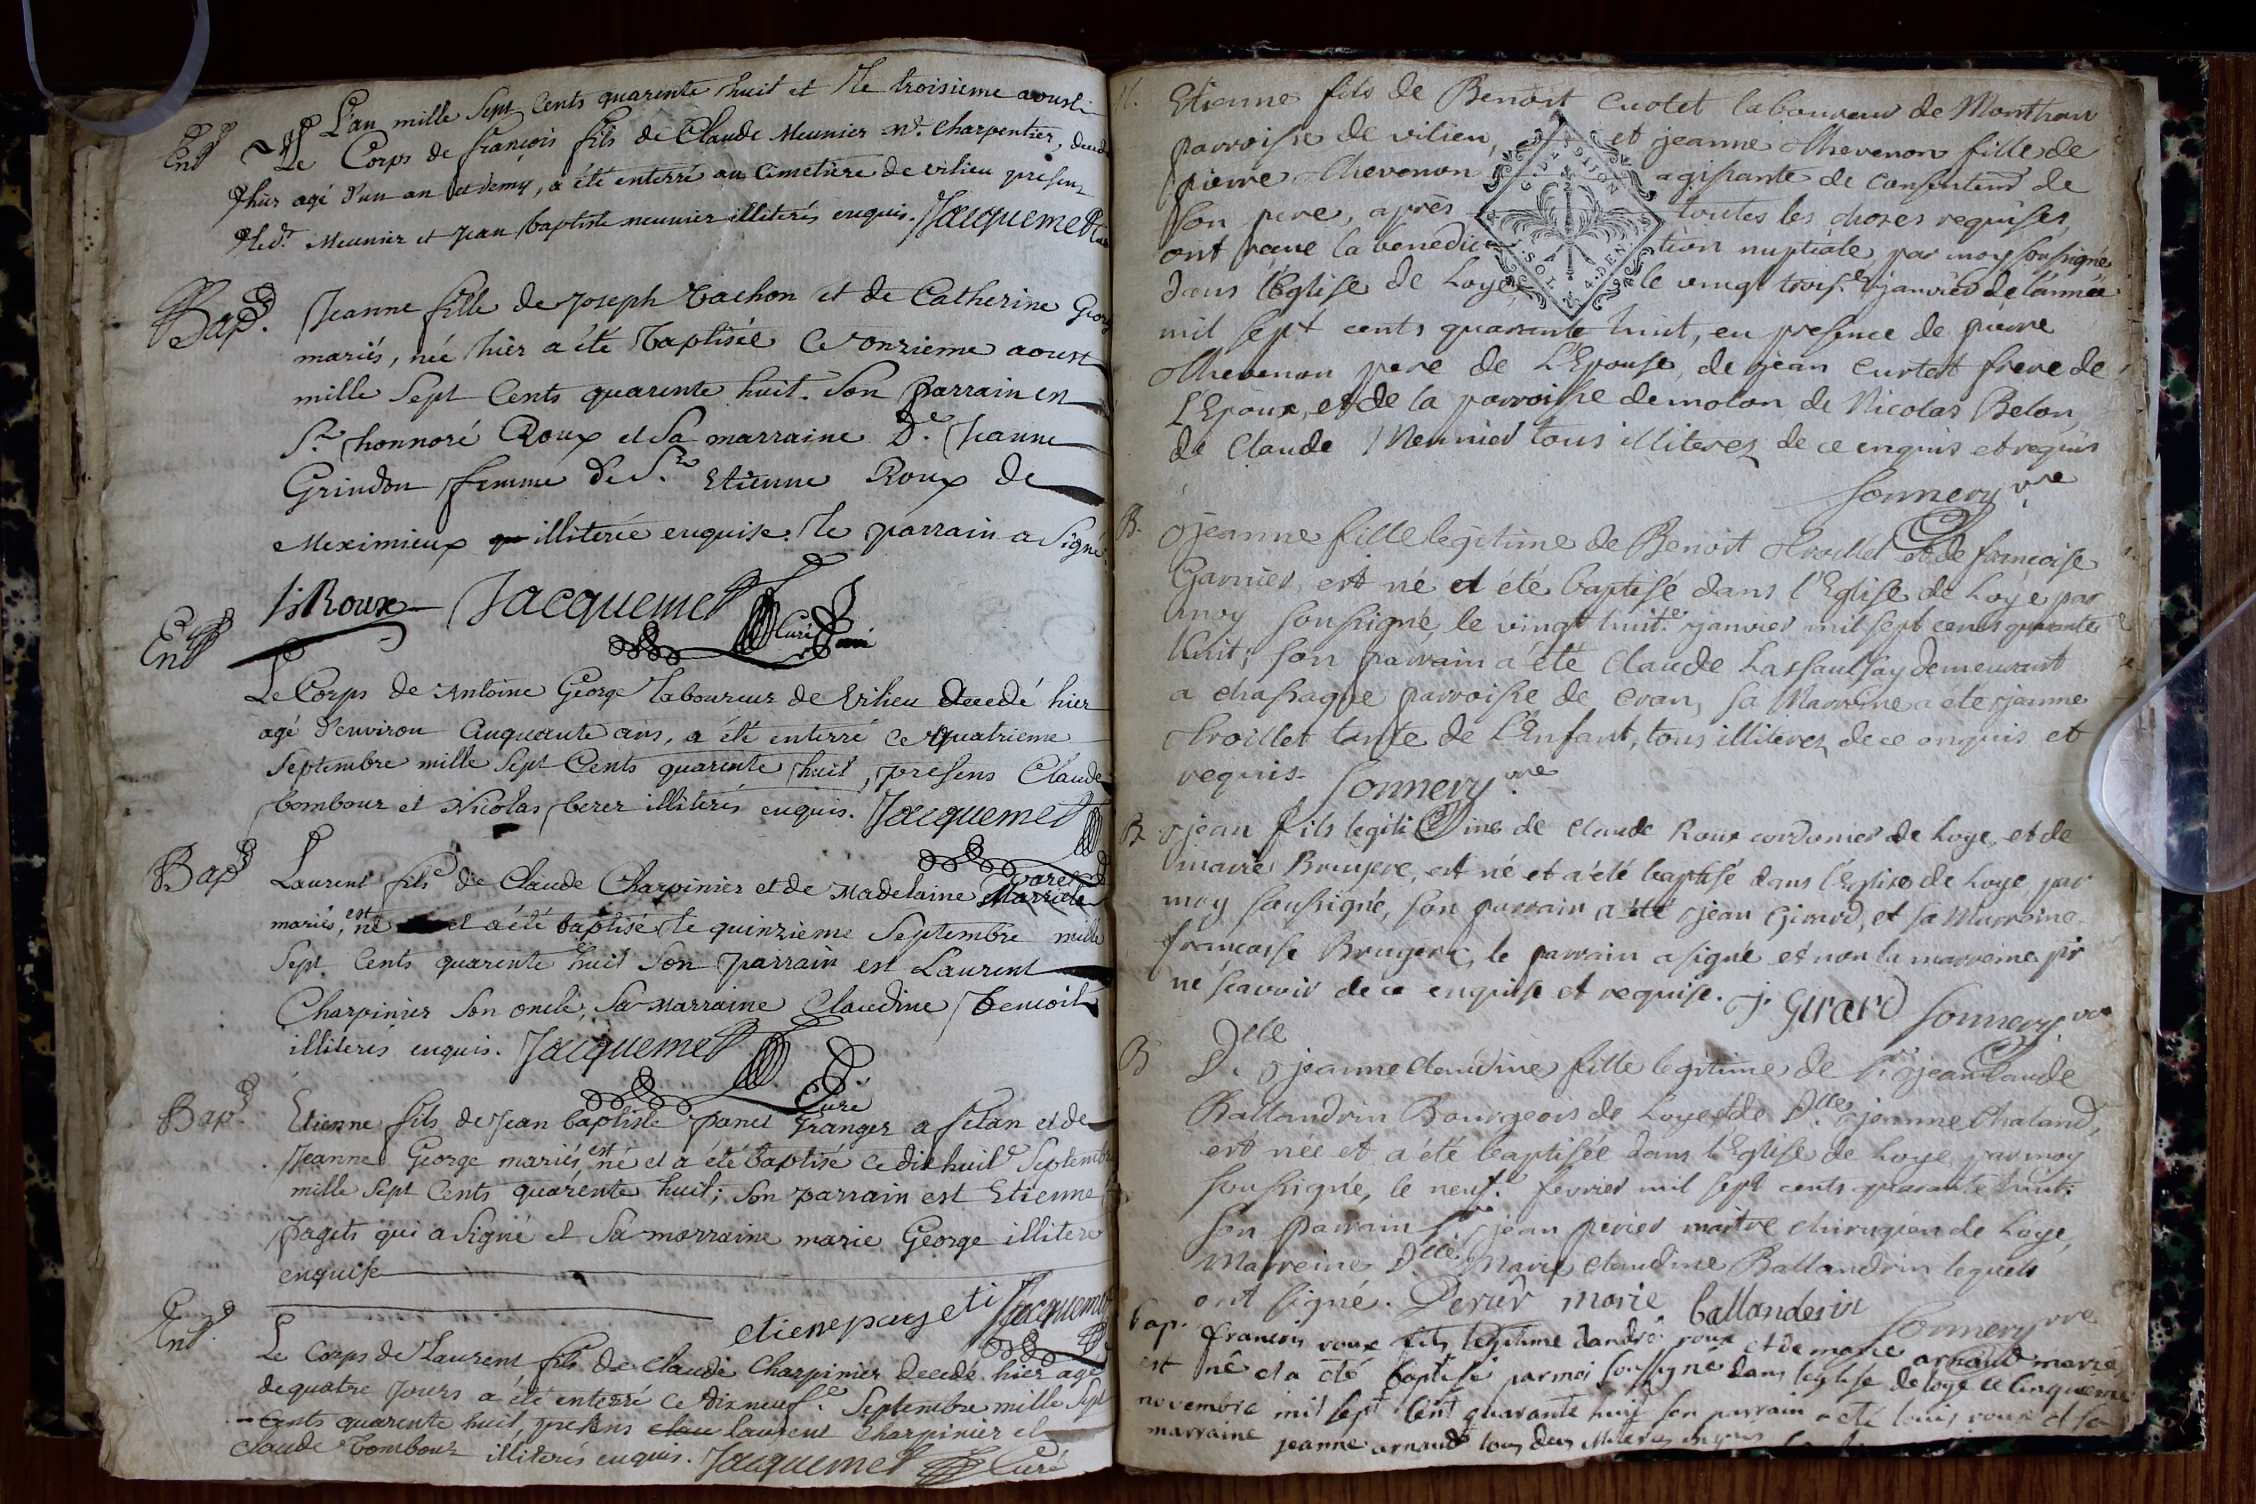 L'an mille Sept Cents quarente huit et le troisieme aoust
Ent
Le Corps de françois fils de Claude Meunier Md. Charpentier, decedé
hier agé d'un an et demy, a été enterré au Cimetiere de vilieu presens
led. Meunier et Jean baptiste meunier illiterés enquis. Jacquemet
Bap
Jeanne fille de Joseph Bachon et de Catherine George
mariés, née hier a été Baptisée Ce onzieme aoust
mille Sept Cents quarente huit. Son Parrain est
Sr. honnoré Roux et Sa marraine De. Jeanne
Grindon femme de Sr. Etienne Roux de
Meximieux illiterée enquise. Le parrain a Signé
Roux Jacquemet
Curé
Ent
Le Corps de Antoine George laboureur de Vilieu decedé hier
agé d'environ Cinquante ans, a été enterré ce quatrieme
Septembre mille Sept Cents quarente huit, presens Claude
bombour et Nicolas berer illiterés enquis. Jacquemet
Bap
Laurent fils de Claude Charpinier et de Madelaine
mariés, est né et a été baptisé le quinzieme Septembre mille
Sept Cents quarente huit Son parrain est Laurent
Charpinier Son oncle, Sa marraine Claudine benoit
illiterés enquis. Jacquemet
Curé
Bap.
Etienne fils de Jean baptiste panet Granger a felan et de
Jeanne George mariés, est né et a été baptisé ce dix huit Septembre
mille Sept Cents quarente huit; Son parrain est Etienne
pagets qui a Signé et Sa marraine marie George illitere
enquise
etiene pageti Jacquemet
Ent.
Le Corps de Laurent fils de Claude Charpinier decedé hier agé
de quatre Jours a été enterré Ce dixneufe. Septembre mille Sept
Cents quarente huit, presens Laurent Charpinier et
Claude bombour illiterés enquis. Jacquemet Curé
M. Etienne fils de Benoit Curtet laboureur de
parroisse de vilieu, et jeanne Thevenon fille de
pierre Thevenon agissante de consentemt de
son pere, après toutes les choses requises,
ont reçue la benediction nuptiale, par moy soussigné
dans l'Eglise de Loye le vingt trois.e janvier de l'année
mil sept cents quarante huit, en presence de pierre
Thevenon pere de L'Epouse, de jean Curtet frere de
L'Epoux, et de la parroisse de molon de Nicolas Belon,
de Claude Meunier tous illiterez de ce enquis et requis
Sonnery vre
B. jeanne fille legitime de Benoit Troillet et de francoise
Garnier, est né et été baptisé dans l'Eglise de Loye par
moy soussigné, le vingt huite. janvier mil sept cents quarante
huit; son parrain a été Claude Lassaussay demeurant
a chassagne parroisse de cran, sa Marraine a été jeanne
Troillet tante de L'Enfant, tous illiterez de ce enquis et
requis. Sonnery vre
B jean fils legitime de claude Roux cordonier de Loye, et de
marie Bruyere, est né et a été baptisé dans l'Eglise de Loye, par
moy soussigné, son parrain a été jean Girard, et sa Marraine
francoise Brugere, le parrain a signé et non la marreine pr
ne scavoir de ce enquise et requise. j. GIRARD Sonnery vre
B Dlle jeanne claudine fille legitime de Sr. jean Claude
Ballandrin Bourgeois de Loye et de Dlle jeanne Chaland,
est née et a été baptisée dans l'Eglise de Loye par moy
soussigné, le neufe. fevrier mil sept cents quarante huit.
son parrain Sr. jean perier maitre chirugien de Loye,
Marreine Dlle Marie claudine Ballandrin lequels
ont signé. Perier marie ballanderin
Sonnery vre
bap. francois roux fils legitime dandré roux et de marie arnaud marié
est né et a été baptisé par moi soussigné dans leglise de loye le cinquieme
novembre mil sept cent quarante huit son parrain a été louis roux et sa
marraine jeanne arnaud tous deux